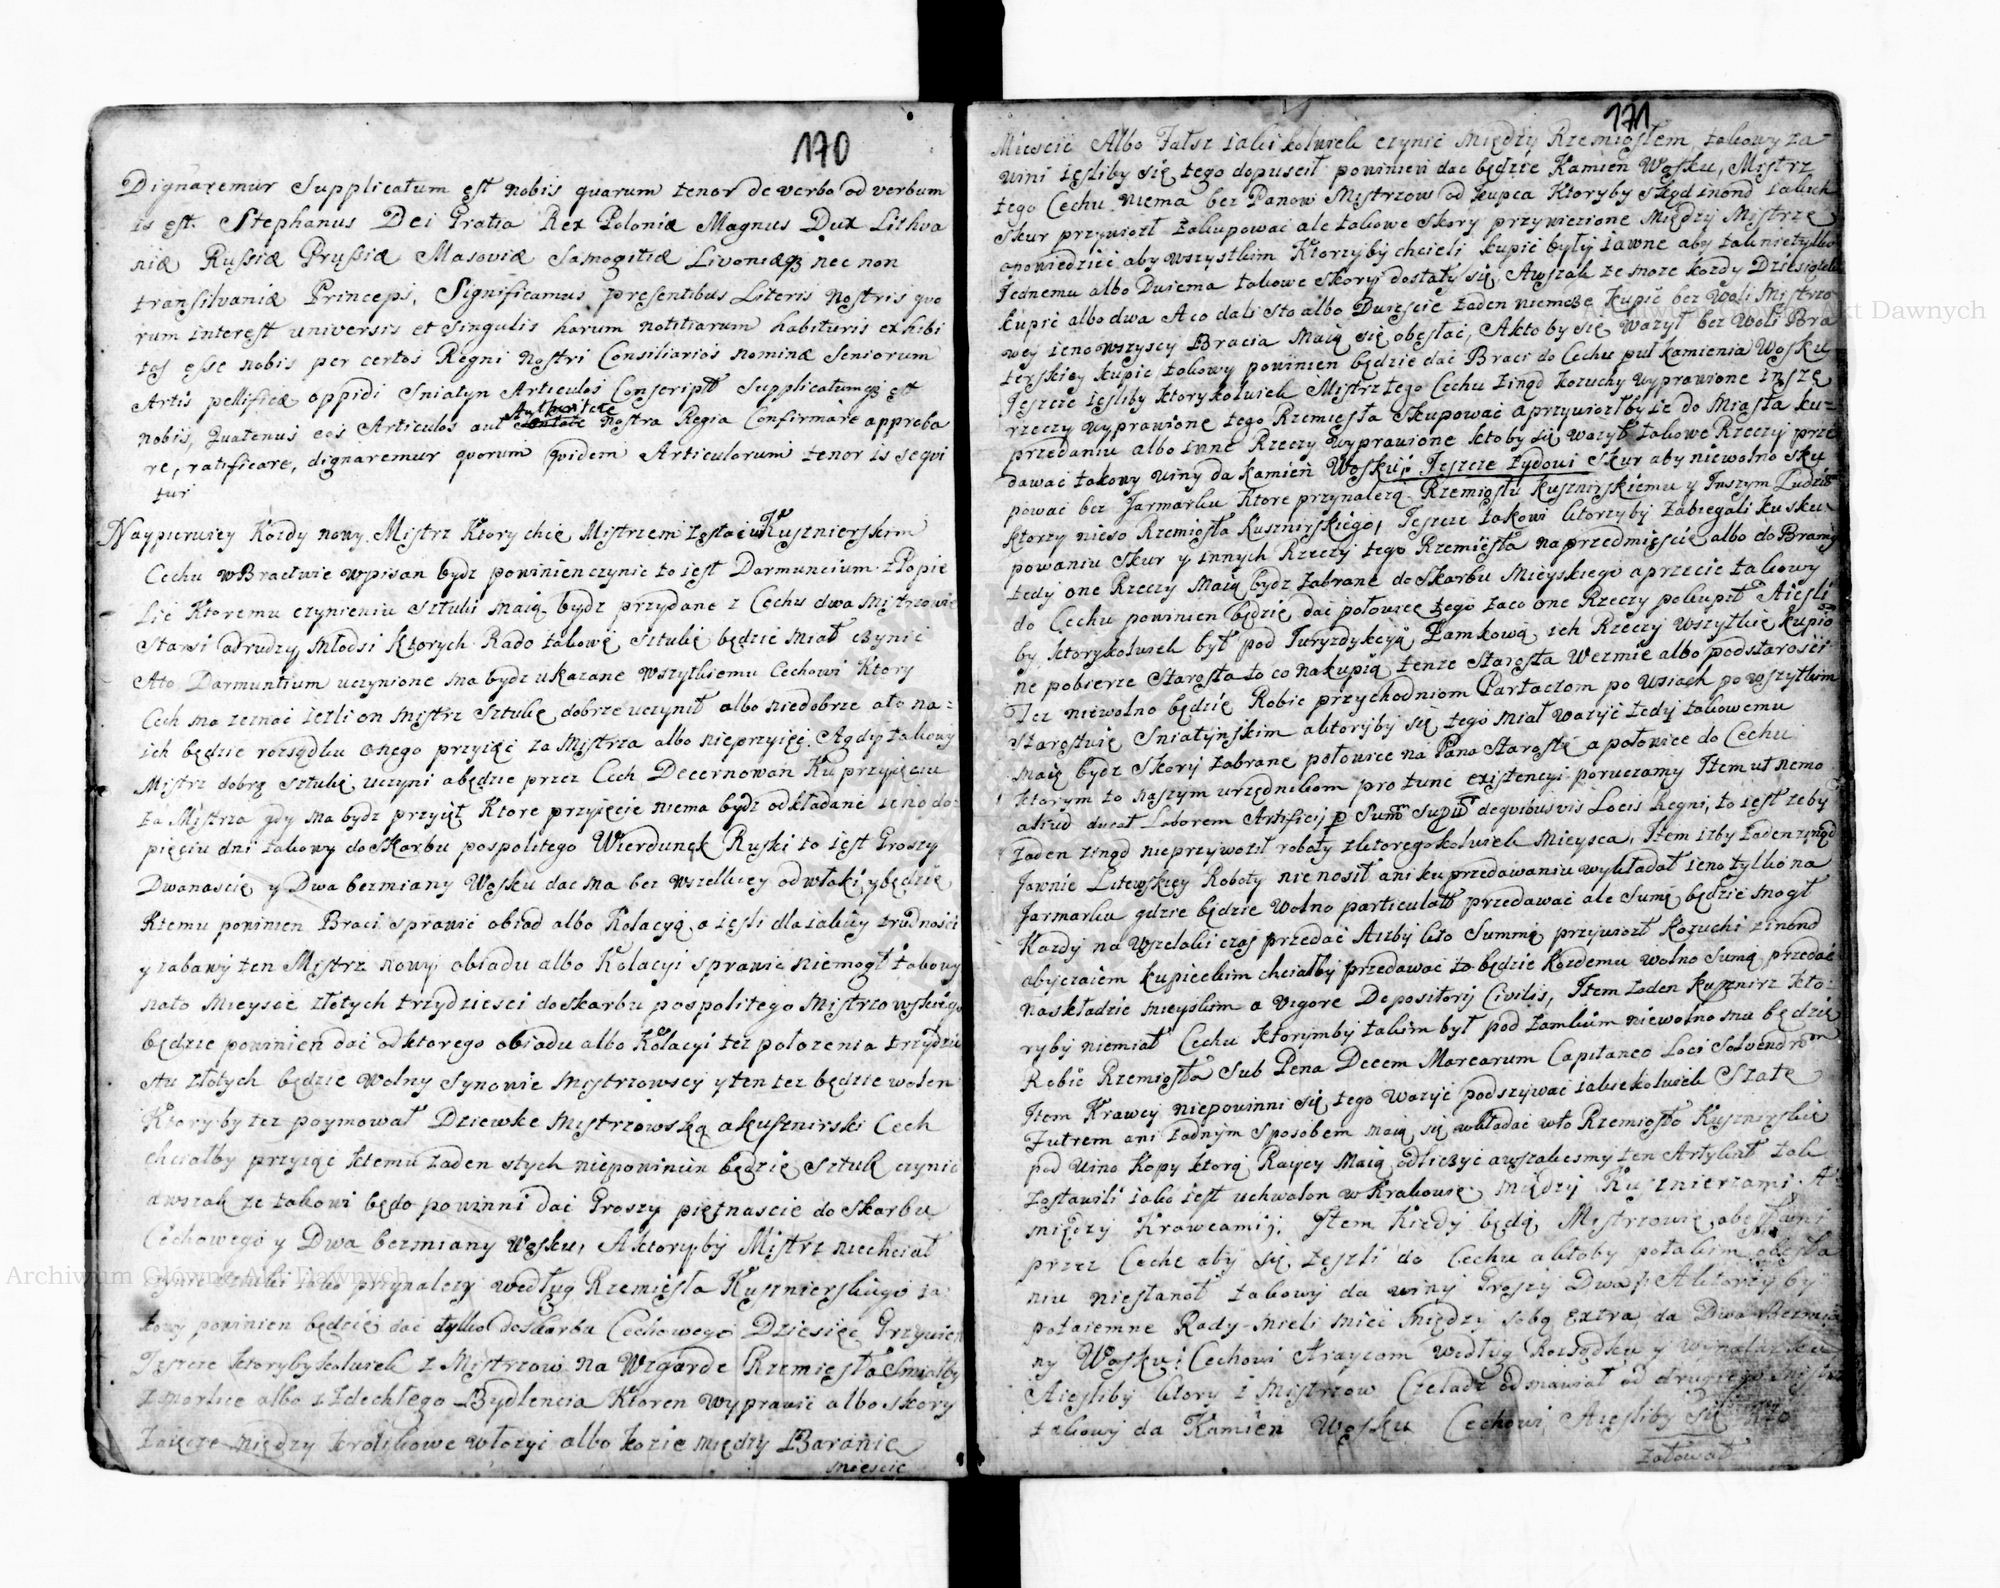 170
Dignaremur Supplicatum est nobis quarum tenor de verbo ad verbum
is est. Stephanus Dei Gratia Rex Poloniæ Magnus Dux Lithva
niæ Russiæ Prussiæ Masoviæ Samogitiæ Livoniæq3 nec non
transilvaniæ Princeps, Significamus præsentibus Literis Nostris quo
rum interest universis et singulis harum notitiarum habituris exhibi
tos esse nobis per certos Regni nostri Consiliarios nominæ Seniorum
Artis pellificæ oppidi Sniatyn Articulos Conscriptos Supplicatumq3 est
nobis, Quatenus eos Articulos aut Authoritate nostra Regia Confirmare approba
re, ratificare, dignaremur quorum quidem Articulorum tenor is sequi
tur
Naypierwiey Kozdy nowy Mistrz Ktory chce Mistrzem zostać w Kusznierskim
Cechu w Bractwie wpisan bydz powinien czynic to iest Darmuncium z Popie
lic Ktoremu czynieniu Sztuki maią bydz przydane z Cechu dwa Mistrzowie
Starsi a drudzy Młodsi Ktorych Rado takowę Sztukę będzie miał czynic
Ato Darmuntium uczynione ma bydz ukazane wszytkiemu Cechowi Ktory
Cech ma zeznać iezli on mistrz Sztukę dobrze uczynił albo niedobrze ato na=
ich będzie rozsądku onego przyiąć za Mistrza albo nieprzyiąć. Agdy takowy
Mistrz dobrą sztukę uczyni abędzie przez Cech Decernowan Ku przyięciu
za Mistrza gdy ma bydz przyięt Ktore przyięcie niema bydz odkładane ieno do
pięciu dni takowy do Skarbu pospolitego Wierdunek Ruski to iest Groszy
Dwanascie y Dwa bezmiany Wosku dac ma bez wszelkiey odwłoki, y będzie
Ktemu powinien Braci sprawic obiad albo Kolacyą, a iesli dla iakiey trudnosci
y zabawy ten Mistrz nowy obiadu albo Kolacyi sprawic niemogł takowy
nato mieysce złotych trzydziesci do skarbu pospolitego Mistrzowskiego
będzie powinien dać od ktorego obiadu albo Kolacyi tez polozenia trzydzie
stu złotych będzie Wolny Synowie Mistrzowscy y ten tez będzie wolen
Ktoryby tez poymował Dziewke Mistrzowską a kusznirski Cech
chciałby przyiąć ktemu zaden stych niepowinien będzie Sztuk czynic
awszak ze takowi będo powinni dać Groszy piętnascie do Skarbu
Cechowego y Dwa bezmiany Wosku, Aktoryby Mistrz niechciał
Sztuki iako przynalezy według Rzemiesła Kusznierskiego ta
kowy powinien będzie dać tylko do skarbu Cechowego Dziesięc Grzywien
Jeszcze ktorybykolwiek z Mistrzow na Wzgarde Rzemiesła Smiałby
z morlice albo z zdechłego Bydlencia Ktoren Wyprawic albo skory
zaięcze między krolikowe włozyć albo kozie między Baranie
miescic
171
Miescic Albo Fałsz iaki kolwiek czynic między Rzemiosłem, takowy za
wini iesliby się tego dopuscił powinien dac będzie Kamien Wosku, Mistrz
tego Cechu niema bez Panow Mistrzow od kupca Ktoryby skąd inond iakich
Skur przywiozł zakupowac ale takowe Skory przywiezione między Mistrze
opowiedziec aby wszystkim Ktorzyby chcieli kupic były iawne aby tak nietylko
Jednemu albo Dwiema takowe Skory dostały się, Awszak ze moze kozdy Dziesiątek
kupic albo dwa Aco dali sto albo Dwiescie zaden niemoze kupic bez Woli Mistrzo
wey ieno wszyscy Bracia maią się obesłać, Akto by się wazył bez Woli Bra
terskiey kupic takowy powinien będzie dać Braci do Cechu puł kamienia Wosku
Jeszcze iesliby ktorykolwiek Mistrz tego Cechu zinąd kozuchy wyprawione insze
rzeczy wyprawione tego Rzemiesła Skupować aprzywiozłby ie do Miasta ku=
przedaniu albo inne Rzeczy wyprawione ktoby się wazył takowe Rzeczy prze
dawać takowy winy da kamien Wosku; Jeszcze Zydowi Skur aby niewolno sku
powac bez Jarmarku Ktore przynalezą Rzemiosłu kusznirskiemu y Inszym Ludziom
ktorzy nieso Rzemiosła Kusznirskiego, Jeszcze takowi ktorzyby zabiegali ku sku
powaniu Skur y innych Rzeczy tego Rzemiesła na przedmiescie albo do Bramy
tedy one Rzeczy maią bydz zabrane do Skarbu Mieyskiego aprzecie takowy
do Cechu powinien będzie dać połowice tego zaco one Rzeczy pokupił Aiesli
by ktorykolwiek był pod Juryzdykcyą Zamkową ich Rzeczy wszytkie kupio
ne pobierze Starosta to co nakupią tenze Starosta Wezmie albo podstarosci
Tez niewolno będzie Robic przychodniom Partaczom po wsiach po wszytkim
Starostwie Sniatynskim aktoryby się tego miał wazyć tedy takowemu
maią bydz Skory zabrane połowice na Pana Starostę a połowice do Cechu
ktorym to naszym urzędnikom pro tunc existencyi poruczamy Item ut nemo
aliud ducat Laborem Artificij p Sum Supu dequibusvis Locis Regni, to iest zeby
zaden zinąd nieprzywoził roboty zktoregokolwiek Mieysca, Item izby zaden zinąd
Jawnie Litewskiey Roboty nie nosił ani ku przedawaniu wykładał ieno tylko na
Jarmarku gdzie będzie wolno particulatim przedawać ale Sumę będzie mogł
Kazdy na Wszelaki czas przedać Aizby kto Summę przywiozł Kozuchi zinond
obyczaiem kupieckim chciałby przedawać to będzie Kozdemu wolno Sumą przedać
na składzie mieyskim a vigore Depositorij Civilis, Item zaden Kusznirz kto=
ryby niemiał Cechu ktorymby takim był pod zamkiem niewolno mu będzie
Robic Rzemiosła Sub Pena Decem Marcarum Capitaneo Loci Solvendrom
Item Krawcy niepowinni się tego Wazyć podszywać iakiekolwiek Szate
Futrem ani zadnym Sposobem maią się wkładać wto Rzemiosło Kusznirskie
pod Wino Kopy ktorą Raycy Maią odliczyć awszakesmy ten Artykuł tak
zostawili iako iest uchwalon w Krakowie między Kusznierzami A
między Krawcamij. Item Kiedy będą Mistrzowie obesłani
przez Ceche aby się zeszli do Cechu a ktoby potakim obesła
niu niestanoł takowy da winy Groszy Dwa; Aktorzyby
potaiemne Rady mieli miec między sobą extra da Dwa Bezmia
ny Wosku Cechowi Araycom według Rozsądku y wynalazku
Aiesliby ktory z Mistrzow Czeladz odmawiał od drugiego Mistrza
takowy da Kamien Wosku Cechowi, Aiesliby się kto
załował
Archiwum Główne Akt Dawnych
Archiwum Główne Akt Dawnych